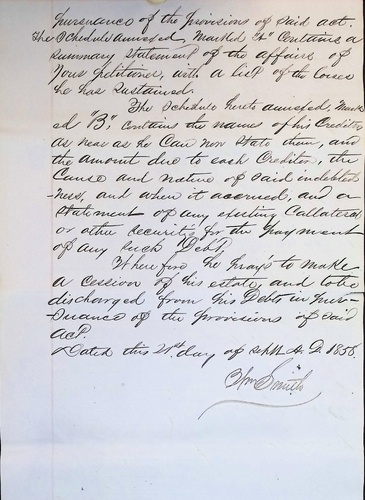 pursuance of the provisions of said act.
The Schedule annexed, Marked "A" Contains a
summary statement of the affairs of
Your petitioner, with a list of the losses
he has sustained.
The Schedule hereto annexed, Mark-
ed "B", contains the name of his Creditors
as near as he Can now State them, and
the amount due to each Creditor, the
Cause and nature of said indebted-
-ness, and when it accrued, and a
statement of any existing Collateral
or other security for the payment
of any such Debt.
Wherefore he pray's to make
a cession of his estate, and to be
discharged from his Debts in pur-
-suance of the provisions of said
act.
Dated this 21st day of Sept A. D. 1858.
Smith